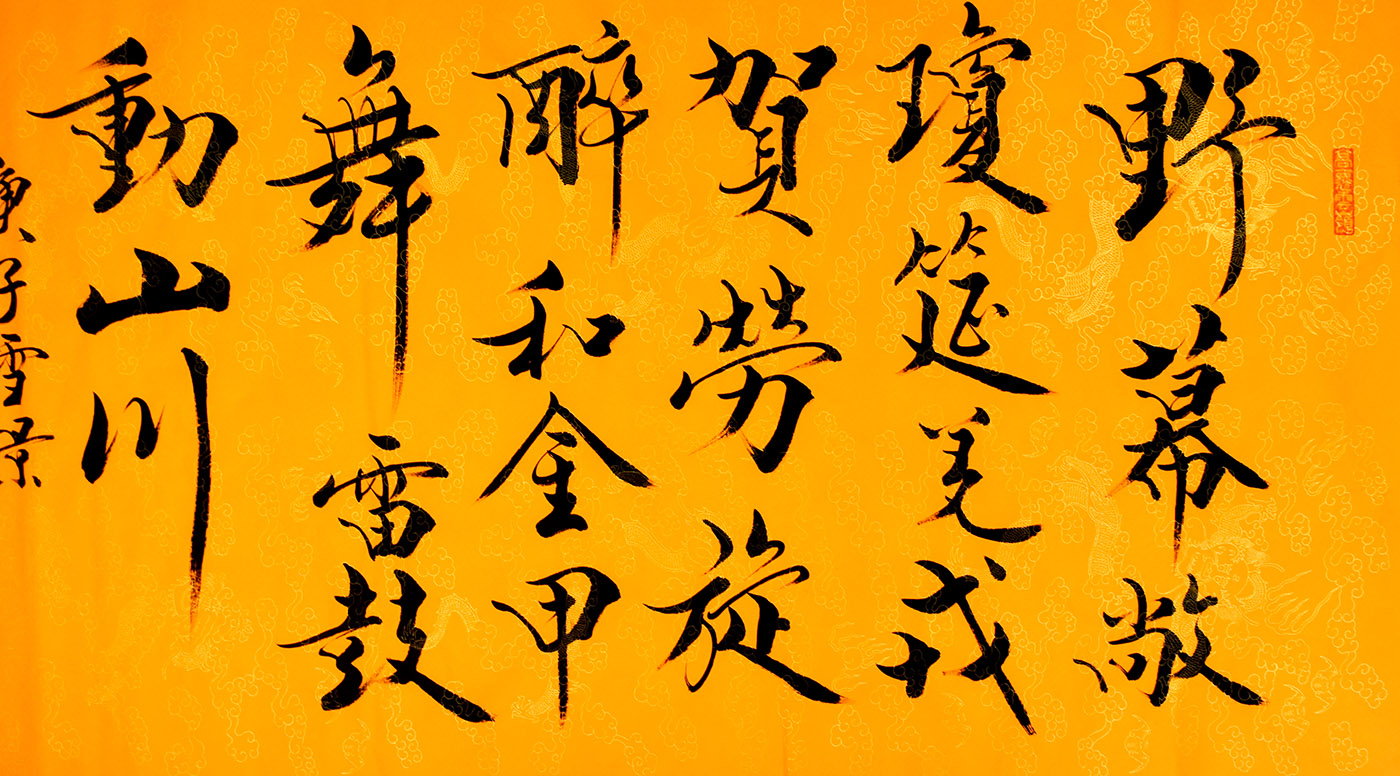 野幕敞
瓊筵羌戎
賀勞旋
醉和金甲
舞雷鼓
動山川
庚子雪景